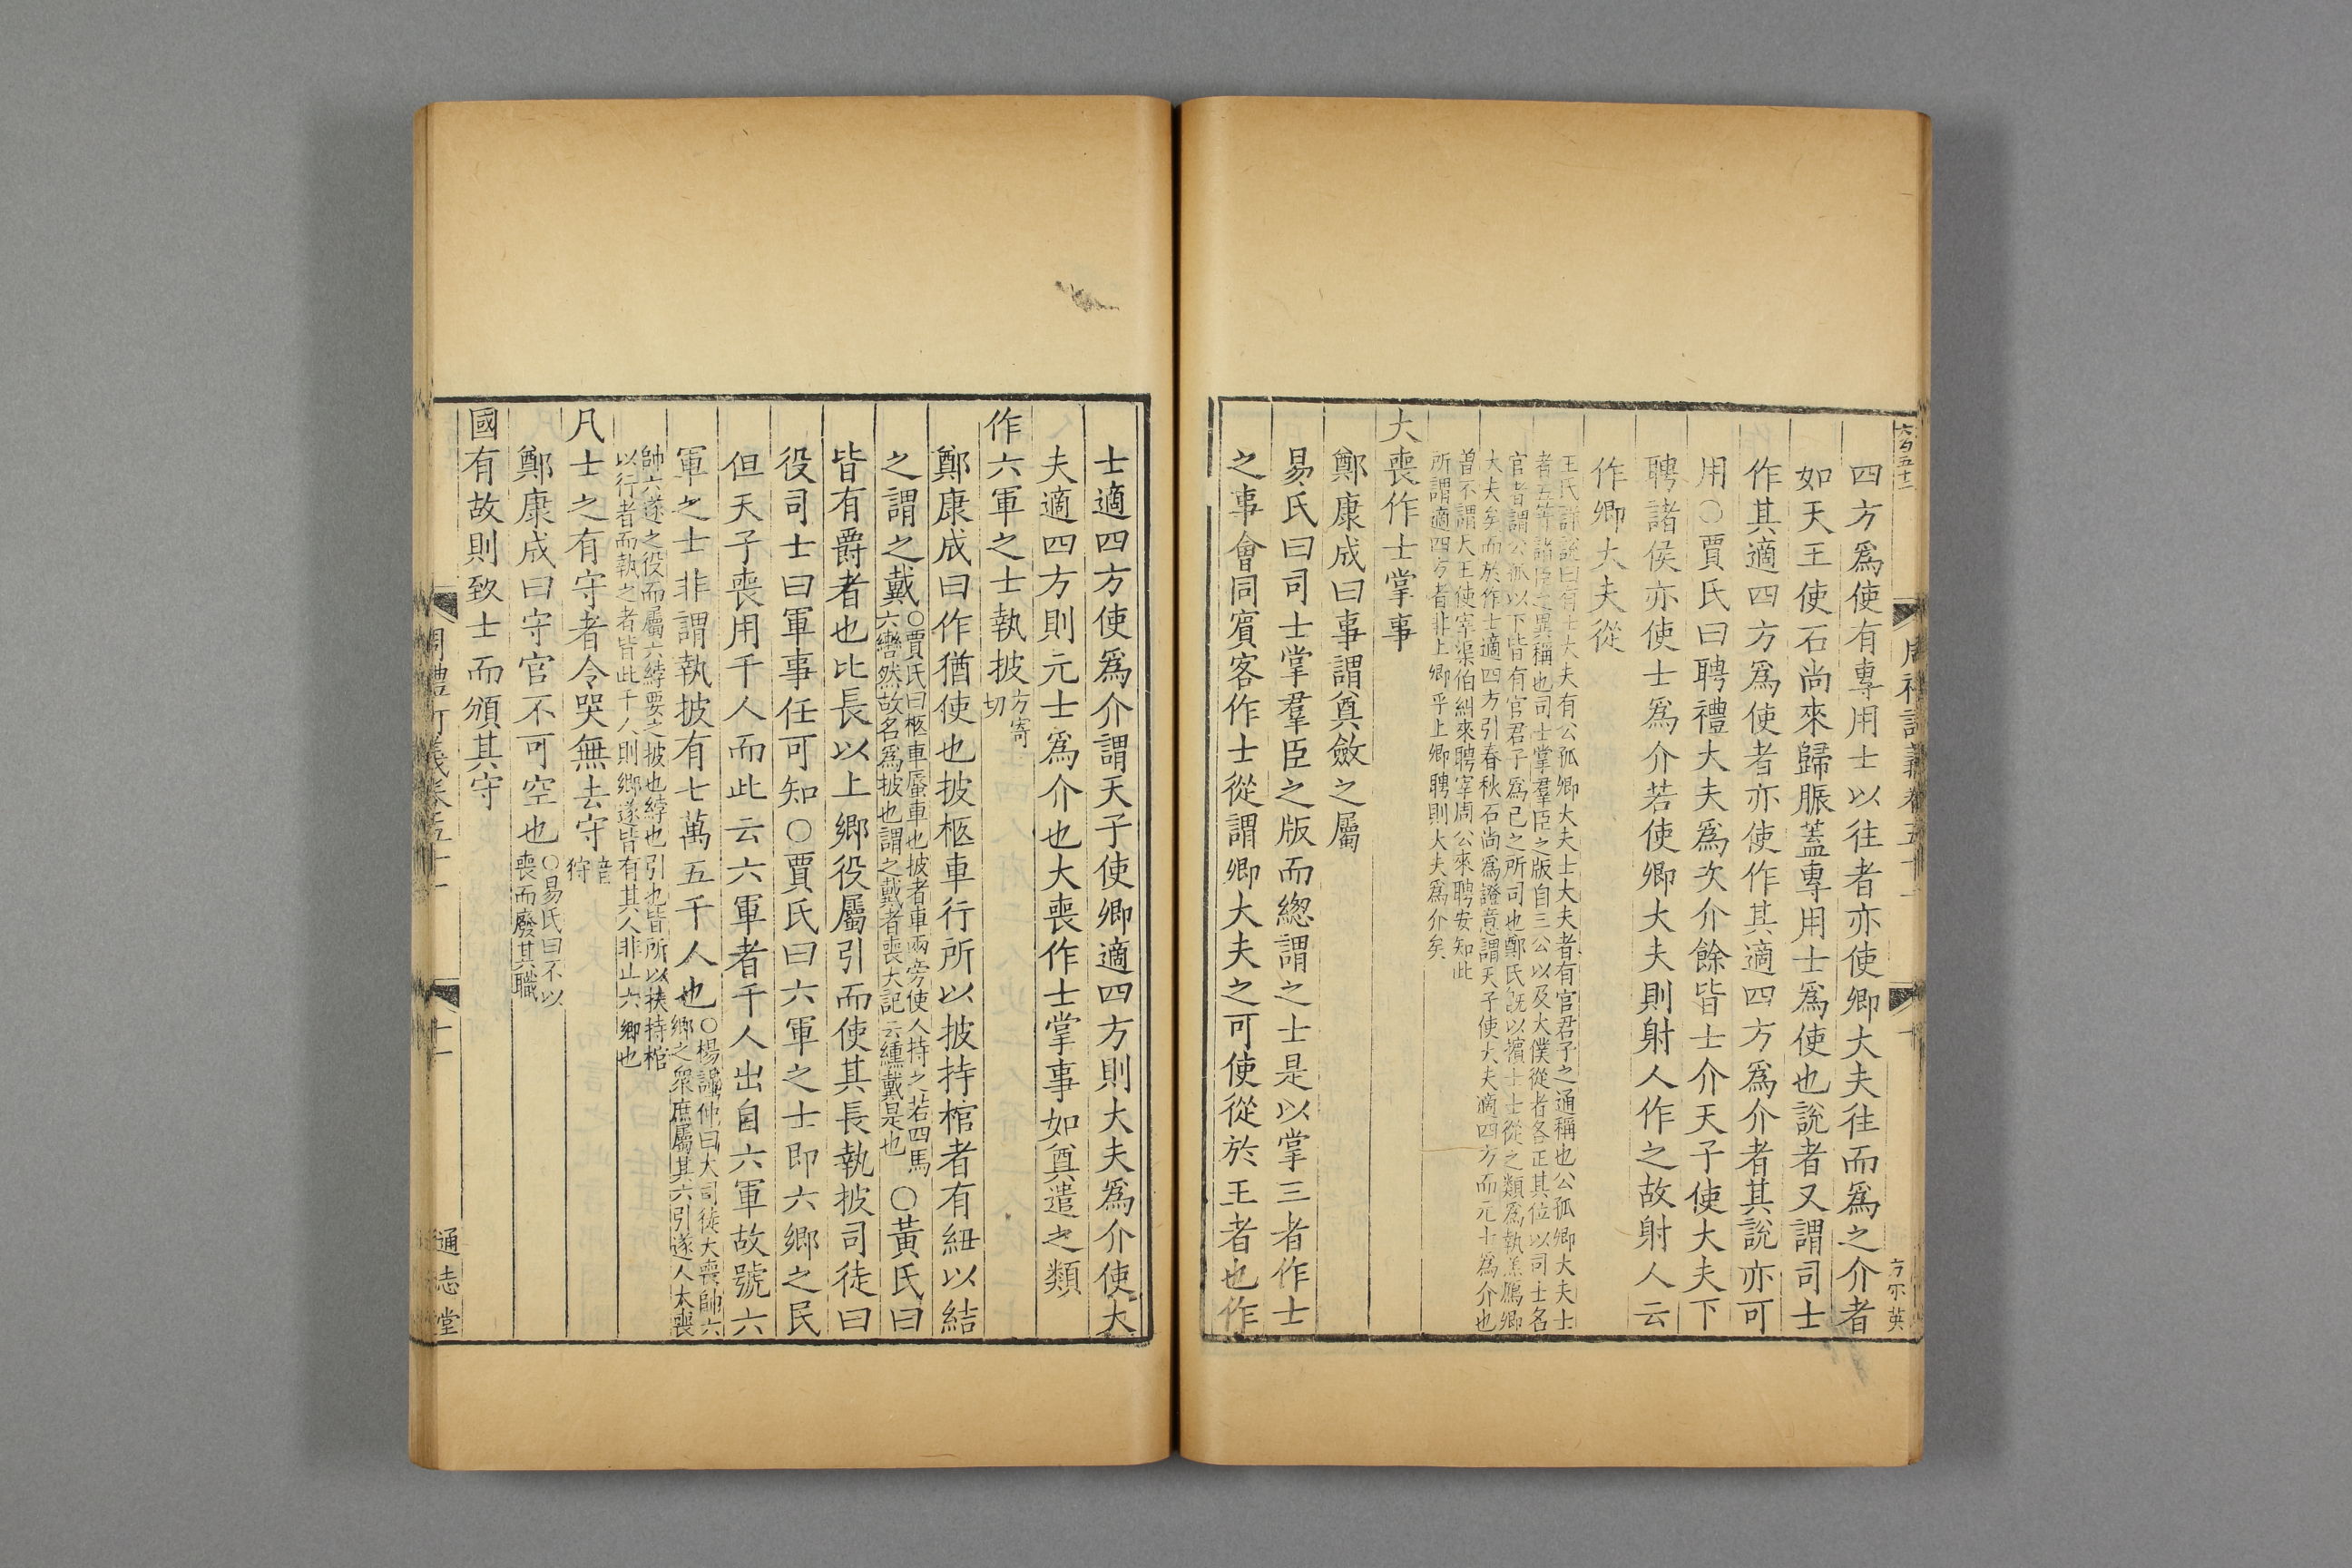 四方爲使有專用士以往者亦使卿大夫往而爲之介者
如天王使石尚來歸脤蓋專用士爲使也說者又謂司士
作其適四方爲使者亦使作其適四方爲介者其說亦可
用○賈氏曰聘禮大夫爲次介餘皆士介天子使大夫下
聘諸侯亦使士爲介若使卿大夫則射人作之故射人云
作卿大夫從
王氏詳說曰有士大夫有公孤卿大夫士大夫者有官君子之通稱也公孤卿大夫士
者五等諸臣之異稱也司士掌羣臣之版自三公以及大僕從者各正其位以司士名
官者謂公孤以下皆有官君子爲己之所司也鄭氏既以擯士士從之類爲執羔鴈卿
大夫矣而於作士適四方引春秋石尚爲證意謂天子使大夫適四方而元士爲介也
曾不謂天王使宰渠伯糾來聘宰周公來聘安知此
所謂適四方者非上卿乎上卿聘則大夫爲介矣
大喪作士掌事
鄭康成曰事謂奠斂之屬
易氏曰司士掌羣臣之版而緫謂之士是以掌三者作士
之事會同賓客作士從謂卿大夫之可使從於王者也作
士適四方使爲介謂天子使卿適四方則大夫爲介使大
夫適四方則元士爲介也大喪作士掌事如奠遣之類
作六軍之士執披方寄切
鄭康成曰作猶使也披柩車行所以披持棺者有紐以結
之謂之戴○賈氏曰柩車蜃車也披者車兩旁使人持之若四馬六轡然故名爲披也謂之戴者喪大記云纁戴是也○黃氏曰
皆有爵者也比長以上鄉役屬引而使其長執披司徒曰
役司士曰軍事任可知○賈氏曰六軍之士即六鄉之民
但天子喪用千人而此云六軍者千人出自六軍故號六
軍之士非謂執披有七萬五千人也○楊謹仲曰大司徒大喪帥六鄉之衆庶屬其六引遂人大喪
帥六遂之役而屬六綍要之披也綍也引也皆所以扶持棺
以行者而執之者皆此千人則鄉遂皆有其人非止六鄉也
凡士之有守者令哭無去守音狩
鄭康成曰守官不可空也○易氏曰不以喪而廢其職
國有故則致士而頒其守
周禮訂義卷五十二
十一
通志堂